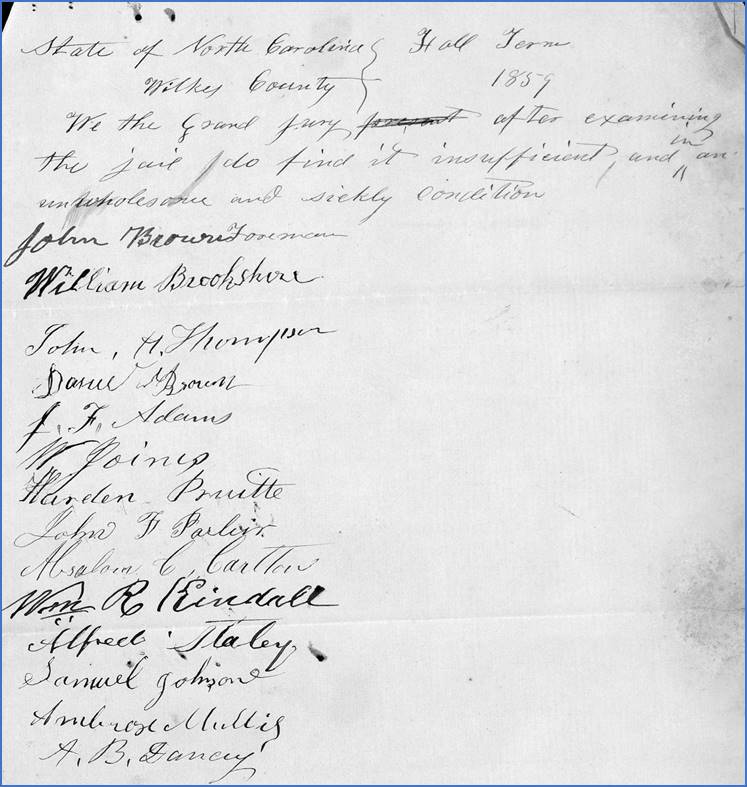 State of North Carolina } Fall Term
Wilkes County } 1859
We the Grand jury present after examining
the jail do find it insufficient, and in an
unwholesome and sickly condition
John Brown Foreman
William Brookshire
John, H. Thompson
Daniel Brown
J. F. Adams
W Joines
Harden Pruitte
John F Parlier
Absalom C. Carlton
Wm R Kindall
Alfred Staley
Samuel Johnson
Ambrose Mullis
A. B. Dancey